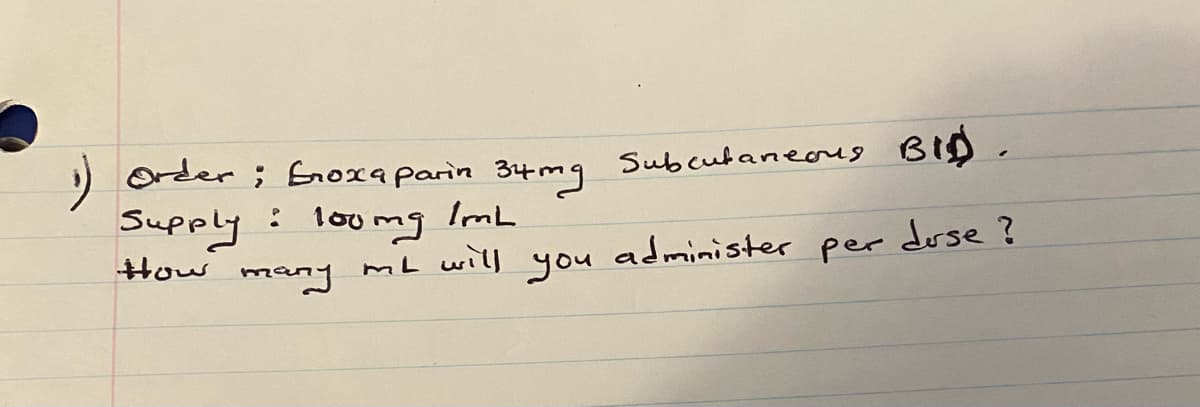 1) Order ; Enoxaparin 34mg Subcutaneous BID.
Supply : 100mg /mL
How many mL will you administer per dose ?